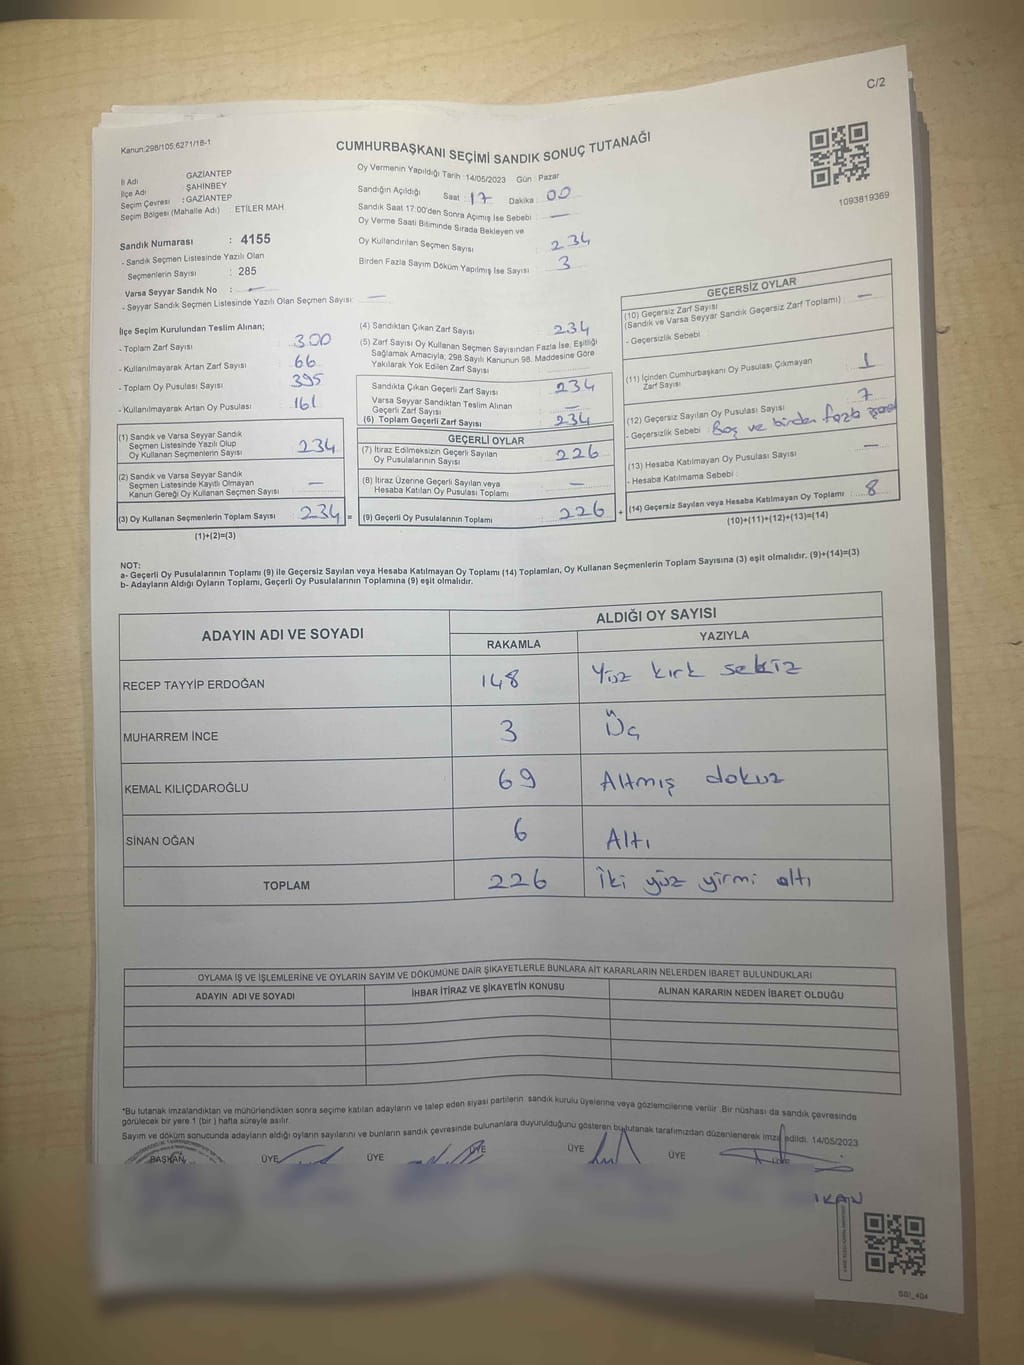 C/2
Kanun:298/105,6271/18-1
CUMHURBAŞKANI SEÇİMİ SANDIK SONUÇ TUTANAĞI
1093819369
İl Adı GAZİANTEP
İlçe Adı ŞAHİNBEY
Seçim Çevresi : GAZİANTEP
Seçim Bölgesi (Mahalle Adı) : ETİLER MAH
Sandık Numarası : 4155
- Sandık Seçmen Listesinde Yazılı Olan
Seçmenlerin Sayısı : 285
Varsa Seyyar Sandık No : —
- Seyyar Sandık Seçmen Listesinde Yazılı Olan Seçmen Sayısı: —
Oy Vermenin Yapıldığı Tarih :14/05/2023 Gün : Pazar
Sandığın Açıldığı Saat : 17 Dakika : 00
Sandık Saat 17:00'den Sonra Açımış İse Sebebi : —
Oy Verme Saati Bitiminde Sırada Bekleyen ve
Oy Kullandırılan Seçmen Sayısı : 234
Birden Fazla Sayım Döküm Yapılmış İse Sayısı : 3
İlçe Seçim Kurulundan Teslim Alınan;
- Toplam Zarf Sayısı : 300
- Kullanılmayarak Artan Zarf Sayısı : 66
- Toplam Oy Pusulası Sayısı : 395
- Kullanılmayarak Artan Oy Pusulası : 161
(1) Sandık ve Varsa Seyyar Sandık
Seçmen Listesinde Yazılı Olup
Oy Kullanan Seçmenlerin Sayısı : 234
(2) Sandık ve Varsa Seyyar Sandık
Seçmen Listesinde Kayıtlı Olmayan
Kanun Gereği Oy Kullanan Seçmen Sayısı : —
(3) Oy Kullanan Seçmenlerin Toplam Sayısı : 234 =
(1)+(2)=(3)
(4) Sandıktan Çıkan Zarf Sayısı : 234
(5) Zarf Sayısı Oy Kullanan Seçmen Sayısından Fazla İse, Eşitliği
Sağlamak Amacıyla, 298 Sayılı Kanunun 98. Maddesine Göre
Yakılarak Yok Edilen Zarf Sayısı :
Sandıkta Çıkan Geçerli Zarf Sayısı : 234
Varsa Seyyar Sandıktan Teslim Alınan
Geçerli Zarf Sayısı : —
(6) Toplam Geçerli Zarf Sayısı : 234
GEÇERLİ OYLAR
(7) İtiraz Edilmeksizin Geçerli Sayılan
Oy Pusulalarının Sayısı : 226
(8) İtiraz Üzerine Geçerli Sayılan veya
Hesaba Katılan Oy Pusulası Toplamı : —
(9) Geçerli Oy Pusulalarının Toplamı : 226 +
GEÇERSİZ OYLAR
(10) Geçersiz Zarf Sayısı
(Sandık ve Varsa Seyyar Sandık Geçersiz Zarf Toplamı) : —
- Geçersizlik Sebebi :
(11) İçinden Cumhurbaşkanı Oy Pusulası Çıkmayan
Zarf Sayısı : 1
(12) Geçersiz Sayılan Oy Pusulası Sayısı : 7
- Geçersizlik Sebebi : Boş ve birden fazla
(13) Hesaba Katılmayan Oy Pusulası Sayısı : —
- Hesaba Katılmama Sebebi :
(14) Geçersiz Sayılan veya Hesaba Katılmayan Oy Toplamı : 8
(10)+(11)+(12)+(13)=(14)
NOT:
a- Geçerli Oy Pusulalarının Toplamı (9) ile Geçersiz Sayılan veya Hesaba Katılmayan Oy Toplamı (14) Toplamları, Oy Kullanan Seçmenlerin Toplam Sayısına (3) eşit olmalıdır. (9)+(14)=(3)
b- Adayların Aldığı Oyların Toplamı, Geçerli Oy Pusulalarının Toplamına (9) eşit olmalıdır.
ADAYIN ADI VE SOYADI ALDIĞI OY SAYISI
RAKAMLA YAZIYLA
RECEP TAYYİP ERDOĞAN 148 Yüz kırk sekiz
MUHARREM İNCE 3 Üç
KEMAL KILIÇDAROĞLU 69 Altmış dokuz
SİNAN OĞAN 6 Altı
TOPLAM 226 İki yüz yirmi altı
OYLAMA İŞ VE İŞLEMLERİNE VE OYLARIN SAYIM VE DÖKÜMÜNE DAİR ŞİKAYETLERLE BUNLARA AİT KARARLARIN NELERDEN İBARET BULUNDUKLARI
ADAYIN ADI VE SOYADI İHBAR İTİRAZ VE ŞİKAYETİN KONUSU ALINAN KARARIN NEDEN İBARET OLDUĞU
*Bu tutanak imzalandıktan ve mühürlendikten sonra seçime katılan adayların ve talep eden siyasi partilerin sandık kurulu üyelerine veya gözlemcilerine verilir .Bir nüshası da sandık çevresinde
görülecek bir yere 1 (bir ) hafta süreyle asılır.
Sayım ve döküm sonucunda adayların aldığı oyların sayılarını ve bunların sandık çevresinde bulunanlara duyurulduğunu gösteren bu tutanak tarafımızdan düzenlenerek imza edildi. 14/05/2023
BAŞKAN ÜYE ÜYE ÜYE ÜYE ÜYE
IKAN